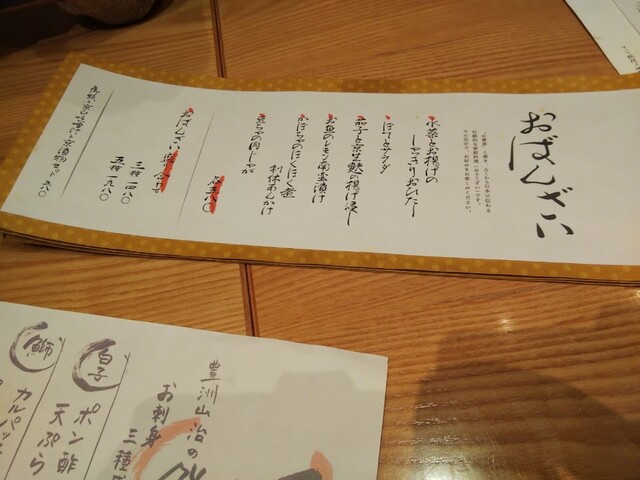 おばんざい
水菜とお揚げの
しゃっきりおひたし
ぽてとサラダ
茄子と京生麩の揚げ浸し
お魚のレモン南蛮漬け
かぼちゃのにんにく煮
利休あんかけ
京ちゃの肉じゃが
各五八〇
おばんざい盛り合わせ
三種 一四八〇
五種 一九八〇
豊洲山治の
お刺身
三種
白子
ポン酢
天ぷら
鰤
カルパッ